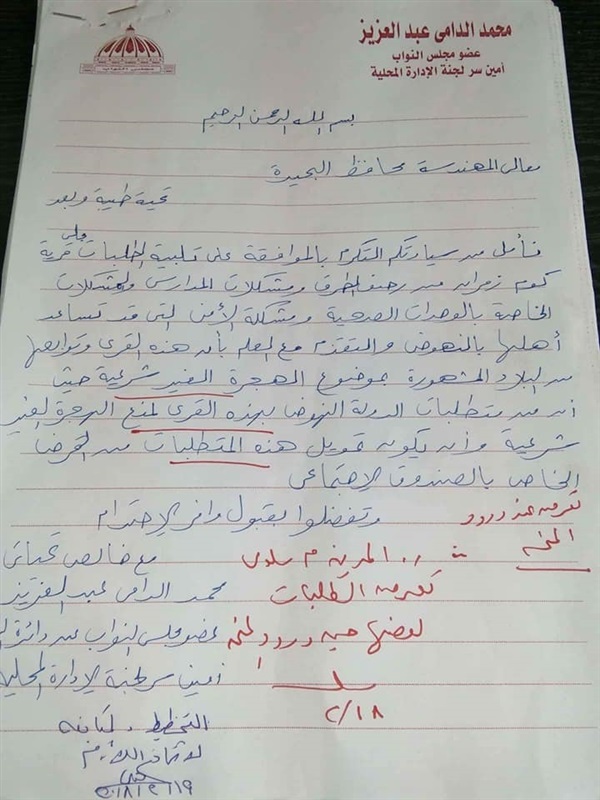 محمد الدامى عبد العزيز
عضو مجلس النواب
أمين سر لجنة الإدارة المحلية
بسم الله الرحمن الرحيم
معالى المهندسة محافظ البحيرة
تحية طيبة وبعد
نأمل من سيادتكم التكرم بالموافقة على تلبية الطلبات قرية
كوم زمران من رصف الطرق ومشكلات المدارس والمشكلات
الخاصة بالوحدات الصحية ومشكلة الأمن التى قد تساعد
أهلها بالنهوض والتقدم مع العلم بأن هذه القرى وتوابعها
من البلاد المشهورة بموضوع الهجرة الغير شرعية حيث
أن من متطلبات الدولة النهوض بهذه القرى لمنع الهجرة الغير
شرعية وأن يكون تمويل هذه المتطلبات من القرض
الخاص بالصندوق الاجتماعى
وتفضلوا بقبول وافر الاحترام
تعرض عند ورود
المنحة
مع خالص تحياتى
محمد الدامى عبد العزيز
عضو مجلس النواب عن دائرة
أمين سر لجنة الإدارة المحلية
تعرض الطلبات
لعرضها حين ورود المنحة
٢/١٨
التخطيط
لاتخاذ اللازم